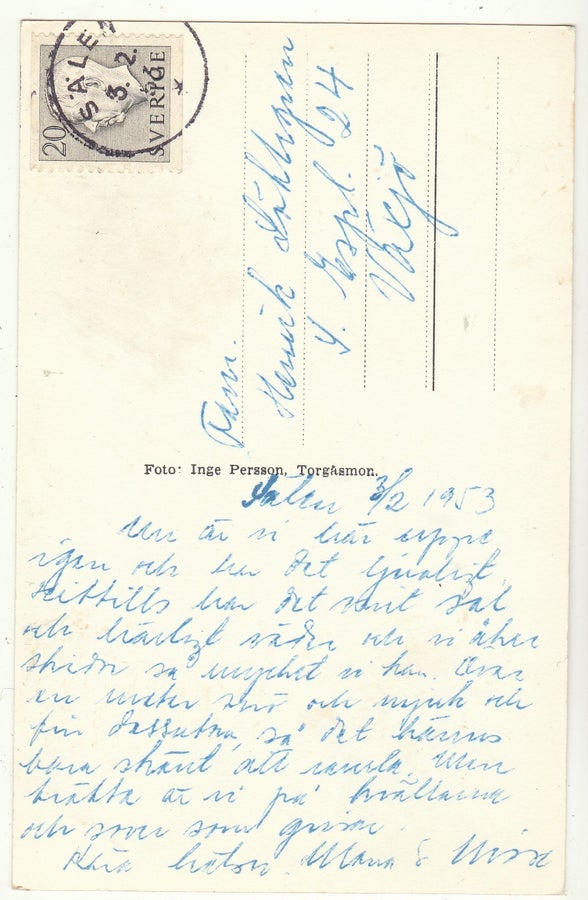 SÄLEN
3.2.
20
SVERIGE
Fam.
Henrik Dahlgren
S. Espl. 24
Växjö
Foto: Inge Persson, Torgåsmon.
Sälen 3/2 1953
Nu är vi här uppe
igen och har det ljuvligt.
Hittills har det varit sol
och härligt väder och vi åker
skidor så mycket vi kan. Över
en meter snö och mjuk och
fin dessutom, så det känns
bara skönt att ramla. Men
trötta är vi på kvällarna
och sover som grisar.
Kära hälsn. Mana & Nisse